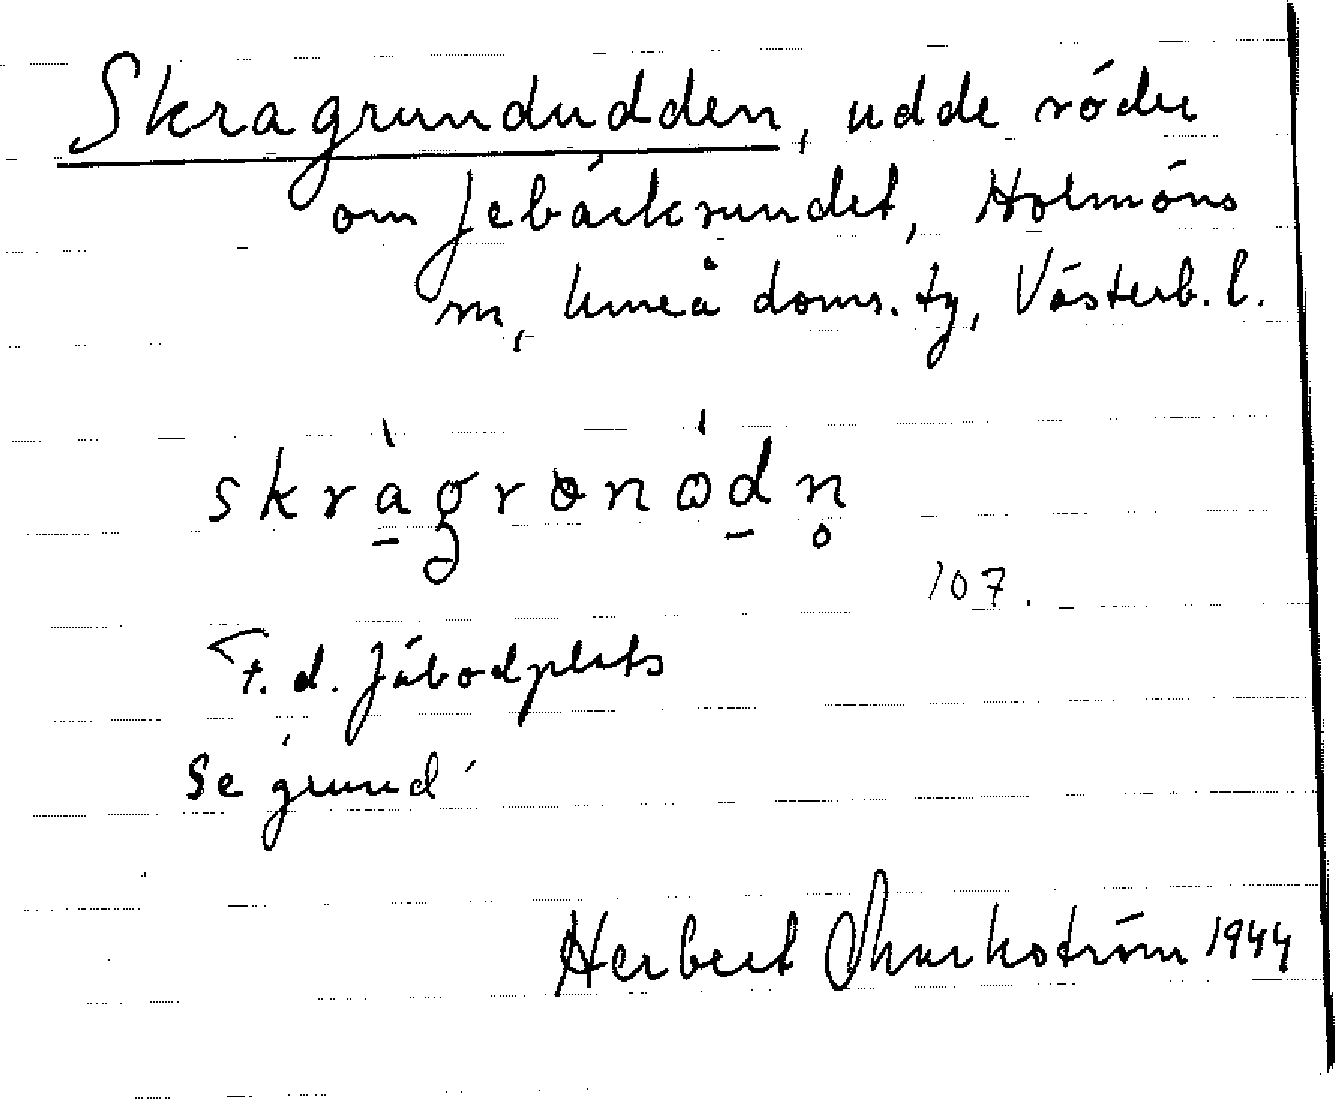 Skragrundudden, udde söder
om Jebäckrundet, Holmöns
sn, Umeå doms. tg, Västerb. l.
skràgronòdn̥
107.
F. d. fäbodplats
Se grund
Herbert Markström 1944